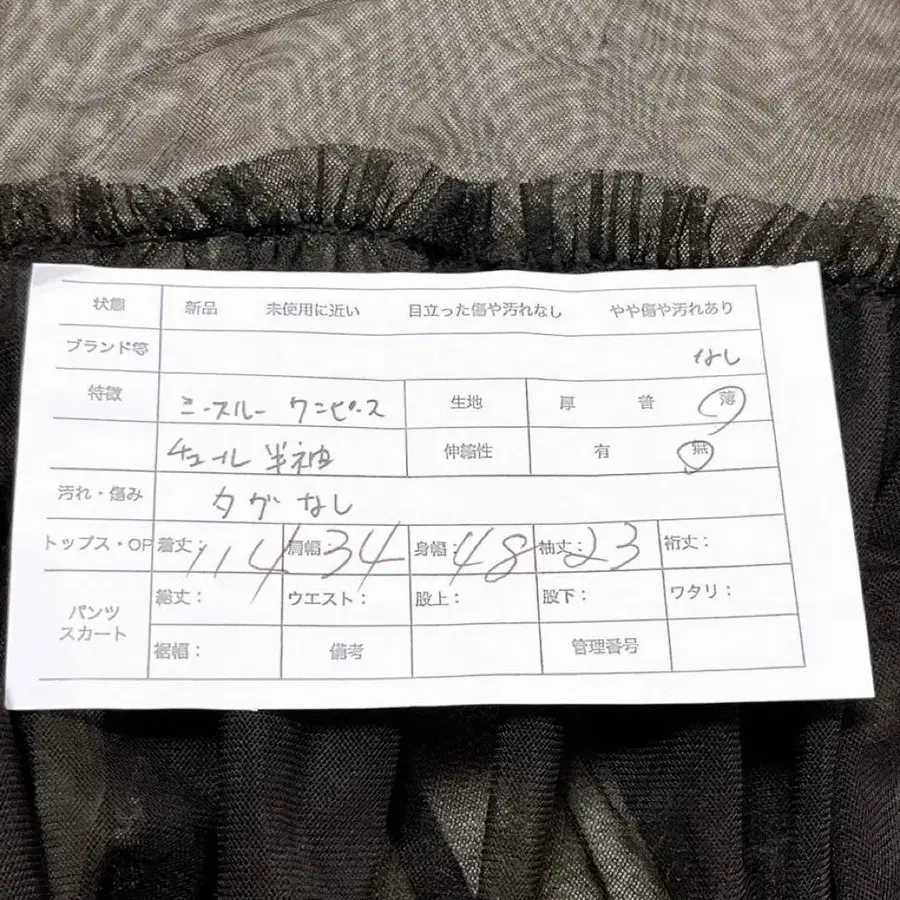 状態 新品 未使用に近い 目立った傷や汚れなし やや傷や汚れあり
ブランド等 なし
特徴 シースルー ワンピース 生地 厚 普 薄
チュール 半袖 伸縮性 有 無
汚れ・傷み タグなし
トップス・OP 着丈：114 肩幅：34 身幅：48 袖丈：23 裄丈：
パンツ スカート 総丈： ウエスト： 股上： 股下： ワタリ：
裾幅： 備考 管理番号